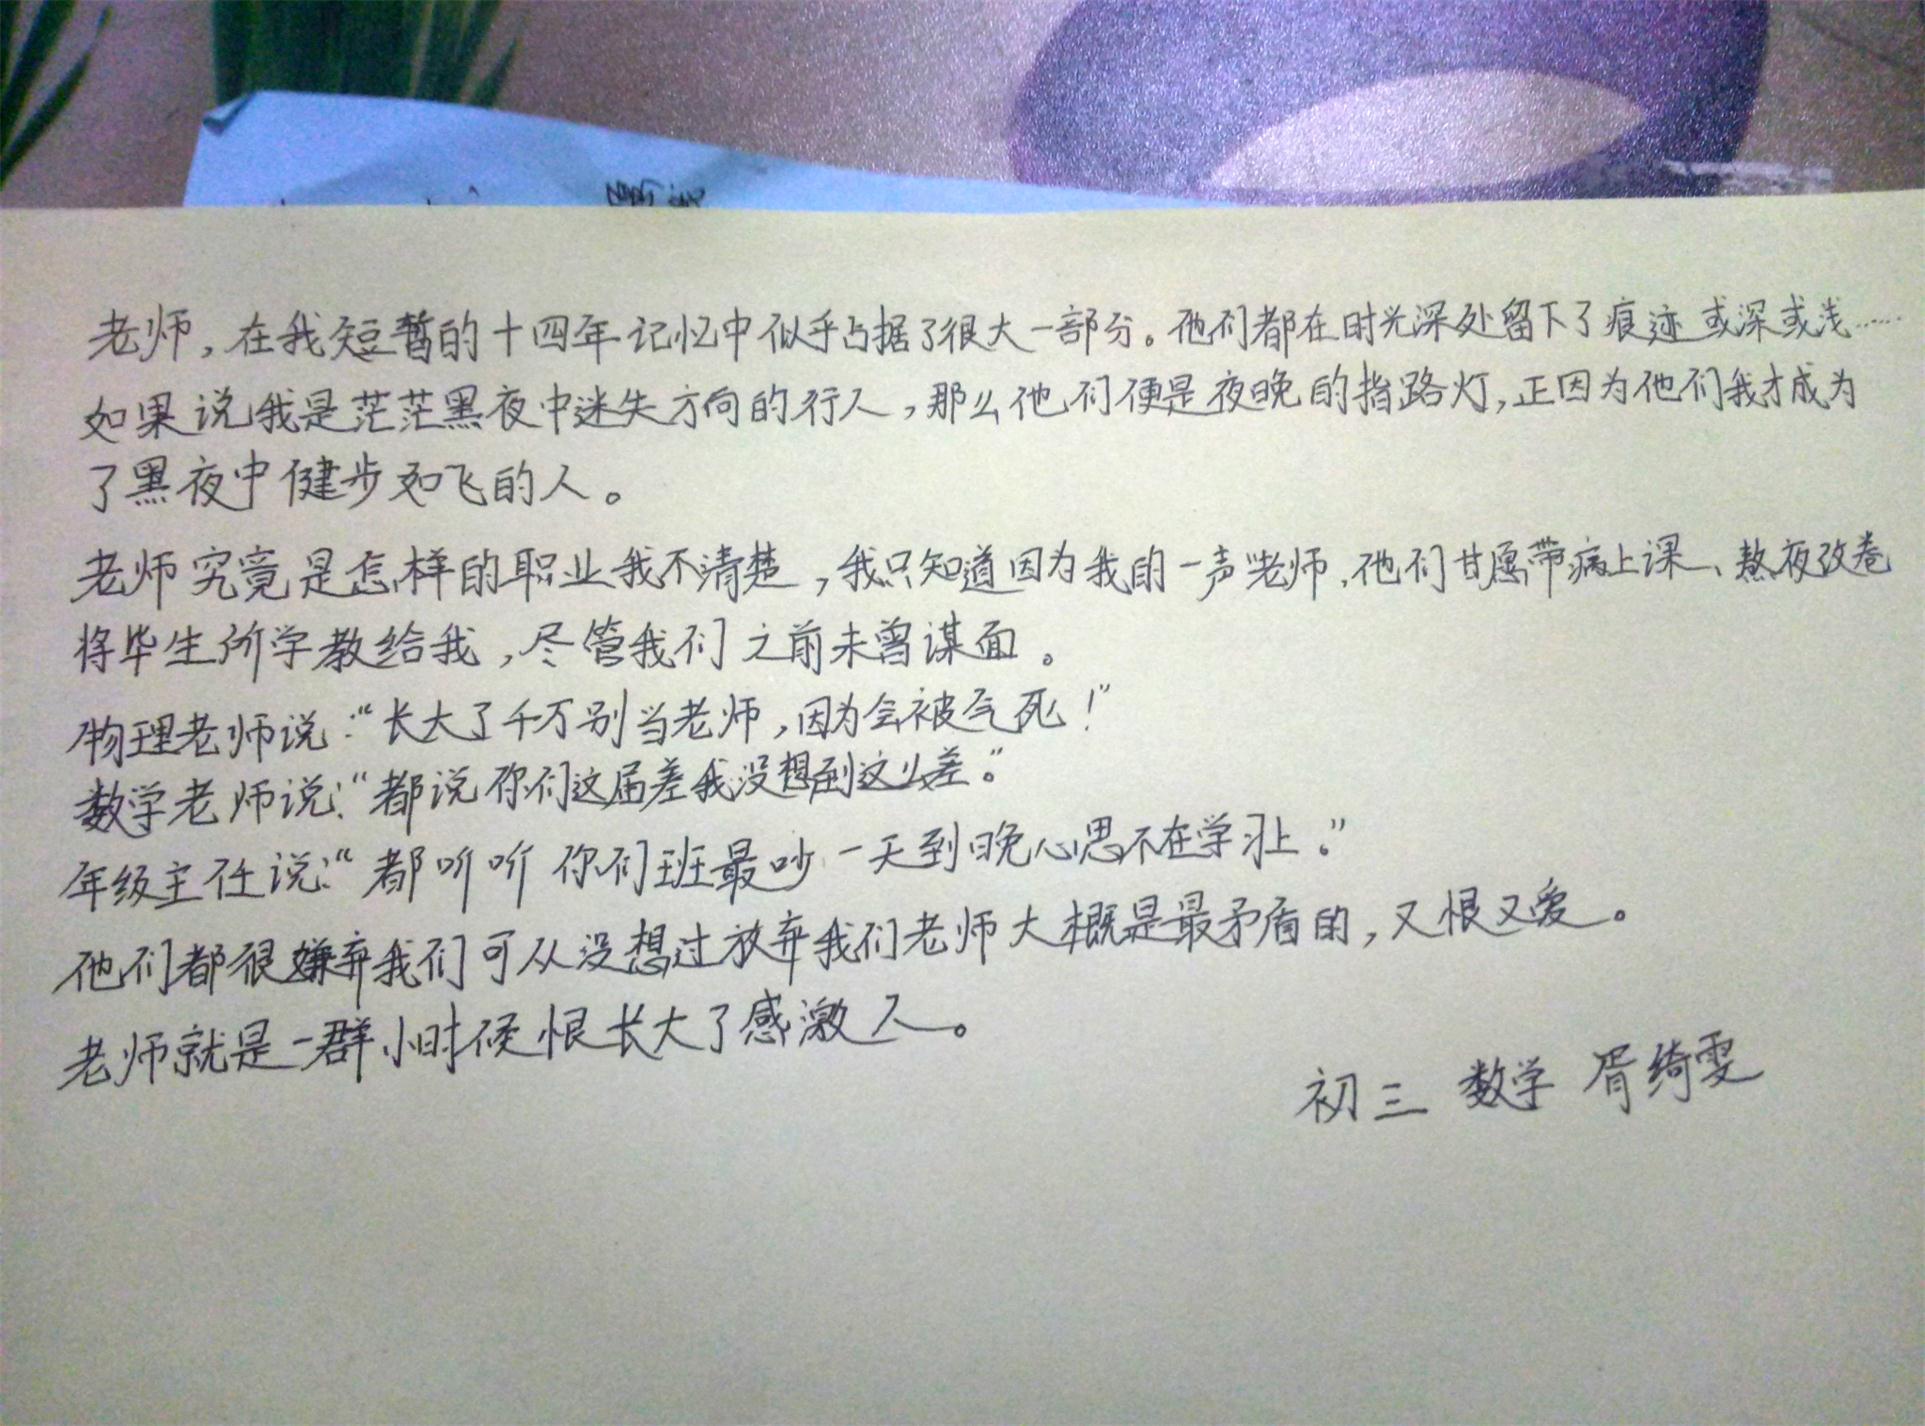 老师，在我短暂的十四年记忆中似乎占据了很大一部分。他们都在时光深处留下了痕迹或深或浅……
如果说我是茫茫黑夜中迷失方向的行人，那么他们便是夜晚的指路灯，正因为他们我才成为
了黑夜中健步如飞的人。
老师究竟是怎样的职业我不清楚，我只知道因为我的一声“老师，他们甘愿带病上课、熬夜改卷
将毕生所学教给我，尽管我们之前未曾谋面。
物理老师说：“长大了千万别当老师，因为会被气死！”
数学老师说：“都说你们这届差我没想到这么差。”
年级主任说：“都听听你们班最吵一天到晚心思不在学习上。”
他们都很嫌弃我们可从没想过放弃我们老师大概是最矛盾的，又恨又爱。
老师就是一群小时候恨长大了感激人。
初三 数学 胥绮雯